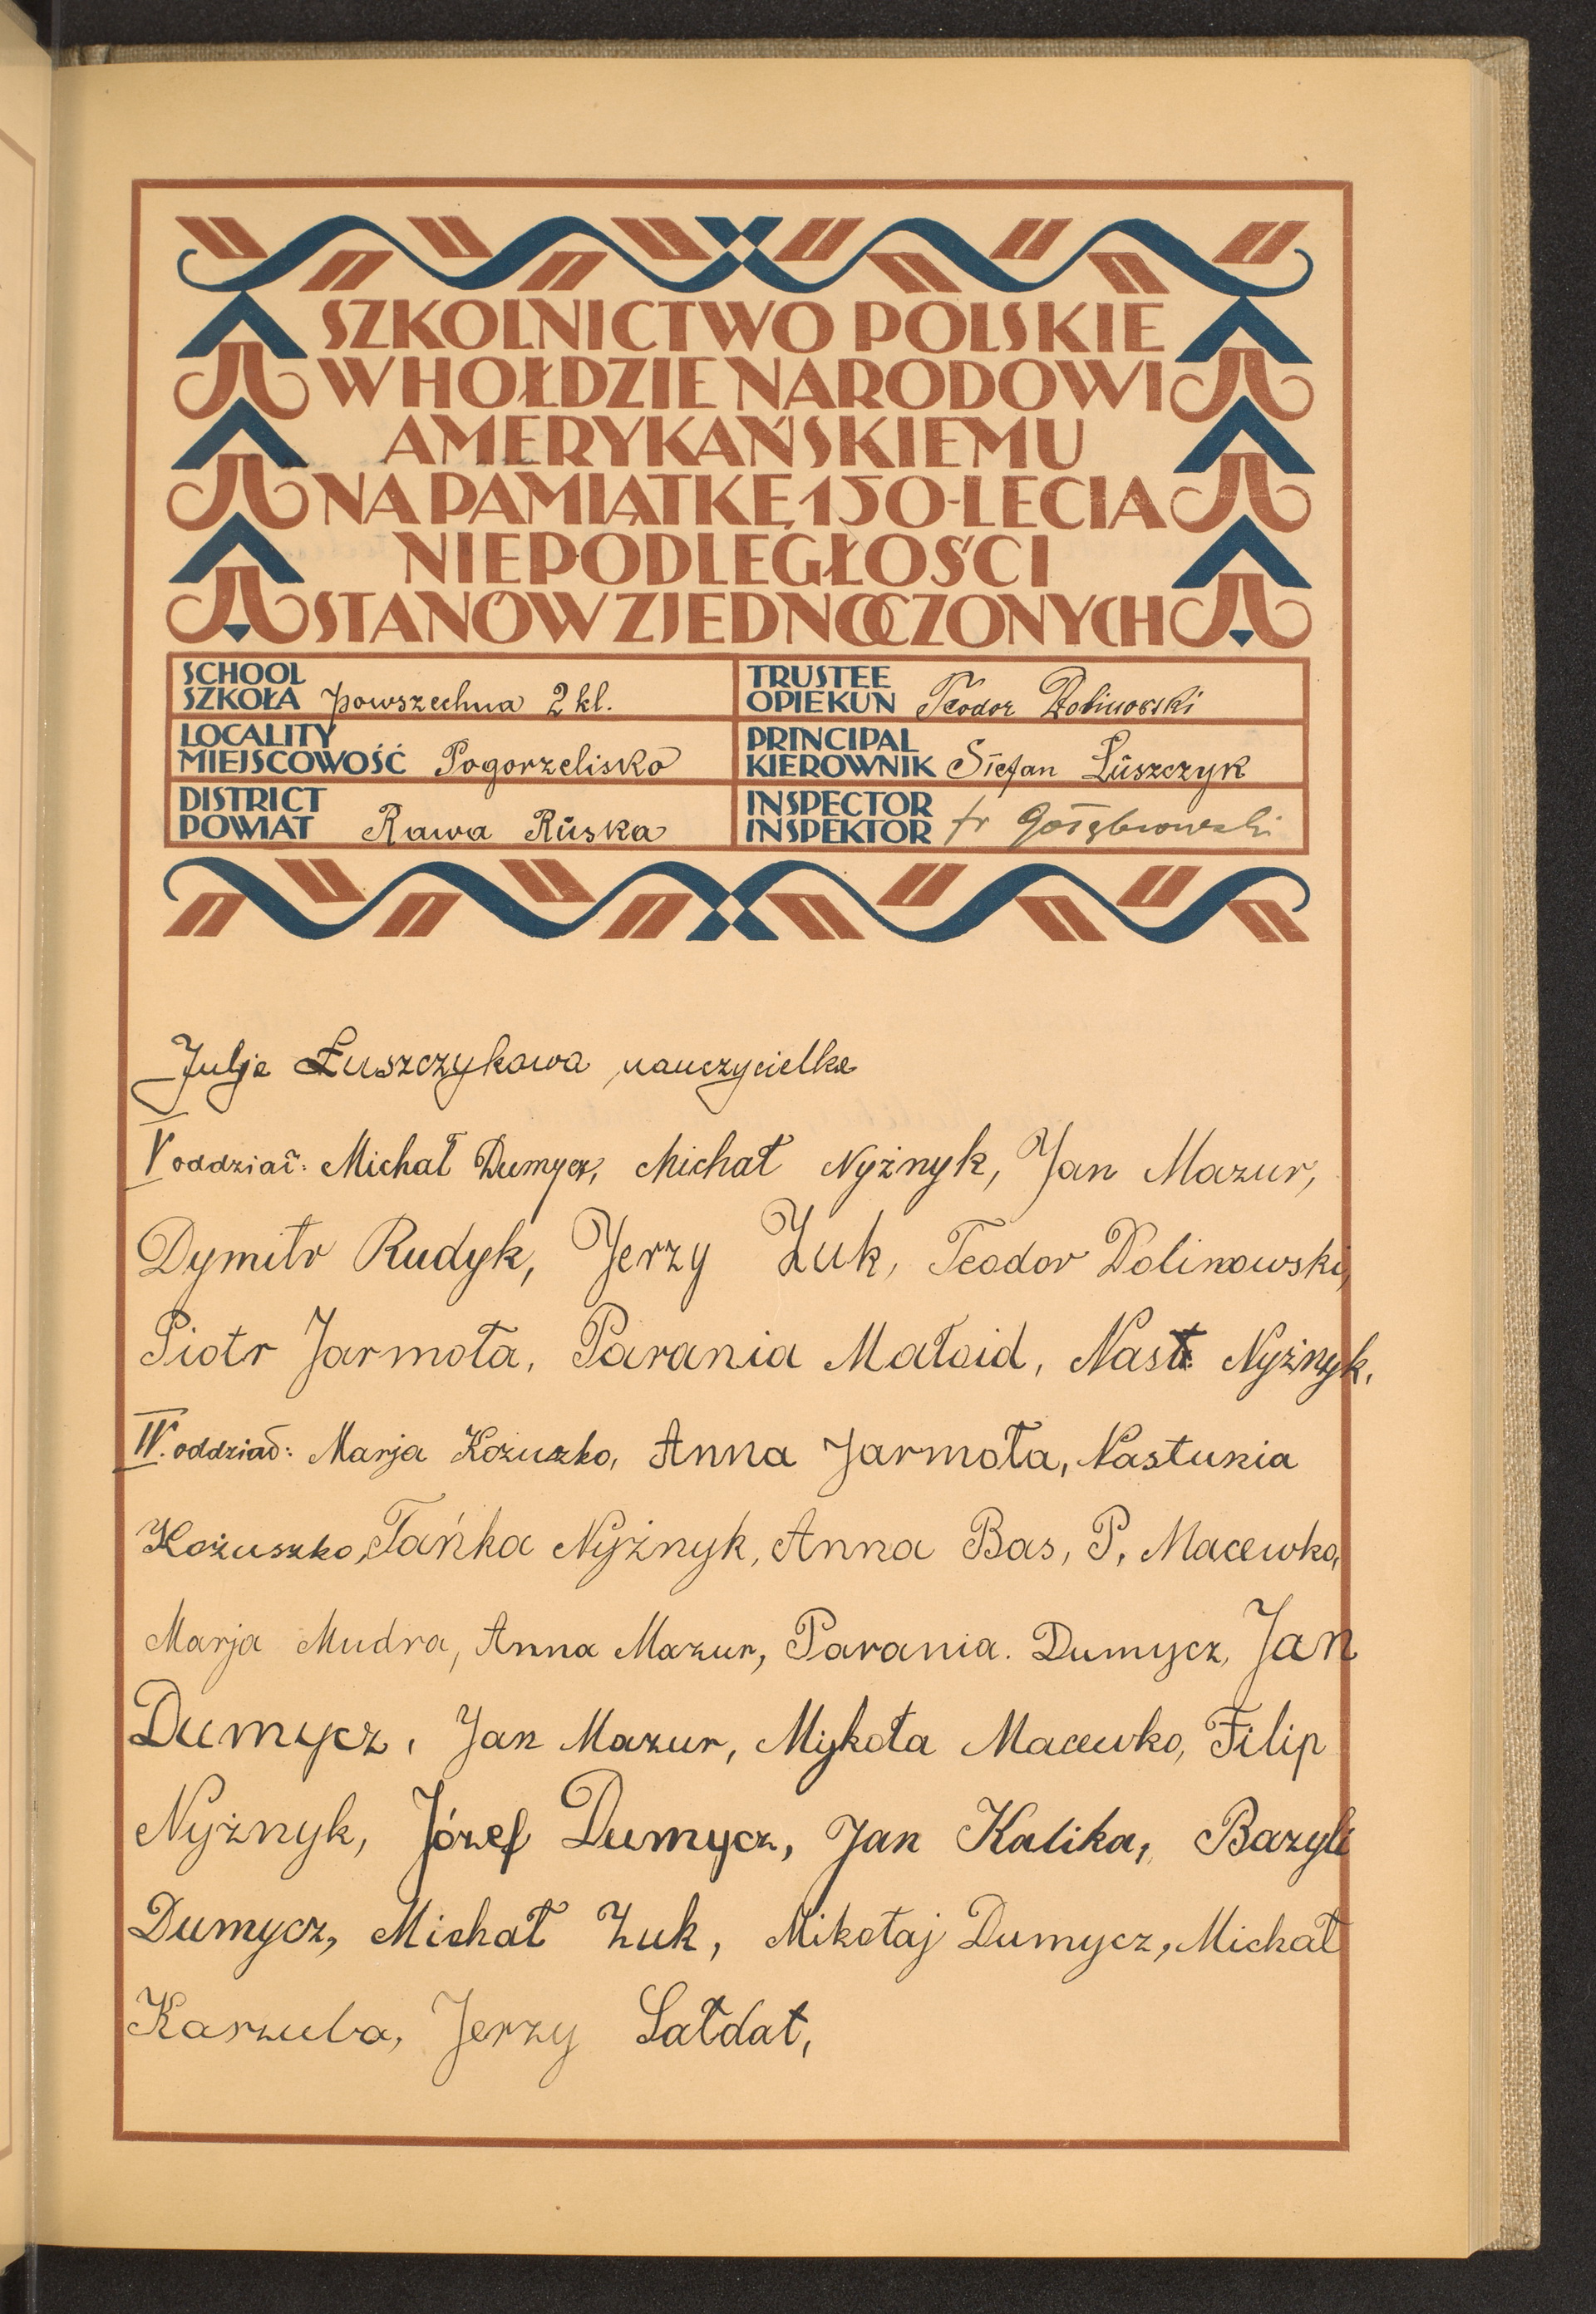 SZKOLNICTWO POLSKIE
W HOŁDZIE NARODOWI
AMERYKAŃSKIEMU
NA PAMIĄTKĘ 150-LECIA
NIEPODLEGŁOŚCI
STANÓW ZJEDNOCZONYCH
SCHOOL
SZKOŁA powszechna 2 kl.
LOCALITY
MIEJSCOWOŚĆ Pogorzelisko
DISTRICT
POWIAT Rawa Ruska
TRUSTEE
OPIEKUN Teodor Dolinowski
PRINCIPAL
KIEROWNIK Stefan Łuszczyk
INSPECTOR
INSPEKTOR fr Gołąbiowski
Julja Łuszczykowa nauczycielka
V oddział: Michał Dumycz, Michał Nyżnyk, Jan Mazur,
Dymitr Rudyk, Jerzy Żuk, Teodor Dolinowski,
Piotr Jarmoła, Parania Matoid, Nast. Nyżnyk,
IV. oddział: Marja Kożuszko, Anna Jarmoła, Nastunia
Kożuszko, Tańka Nyżnyk, Anna Bas, P. Macewko,
Marja Mudra, Anna Mazur, Parania. Dumycz, Jan
Dumycz, Jan Mazur, Mykoła Macewko, Filip
Nyżnyk, Józef Dumycz, Jan Kalika, Bazyli
Dumycz, Michał Żuk, Mikołaj Dumycz, Michał
Karzuba, Jerzy Sałdat,